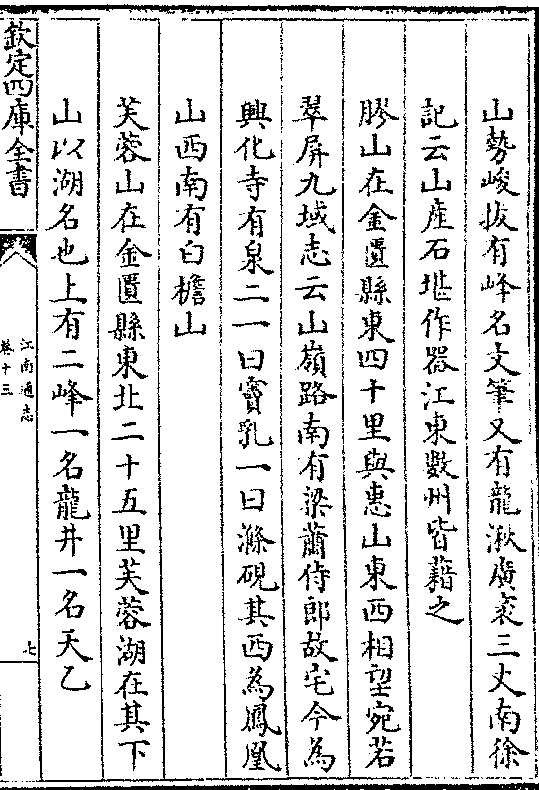 山勢峻拔有峰名文筆又有龍湫廣袤三丈南徐
記云山産石堪作器江東數州皆藉之
膠山在金匱縣東四十里與惠山東西相望宛若
翠屏九域志云山嶺路南有梁蕭侍郎故宅今為
興化寺有泉二一曰竇乳一曰滌硯其西為鳳凰
山西南有白檐山
芙蓉山在金匱縣東北二十五里芙蓉湖在其下
山以湖名也上有二峰一名龍井一名天乙
欽定四庫全書
江南通志
卷十三
七